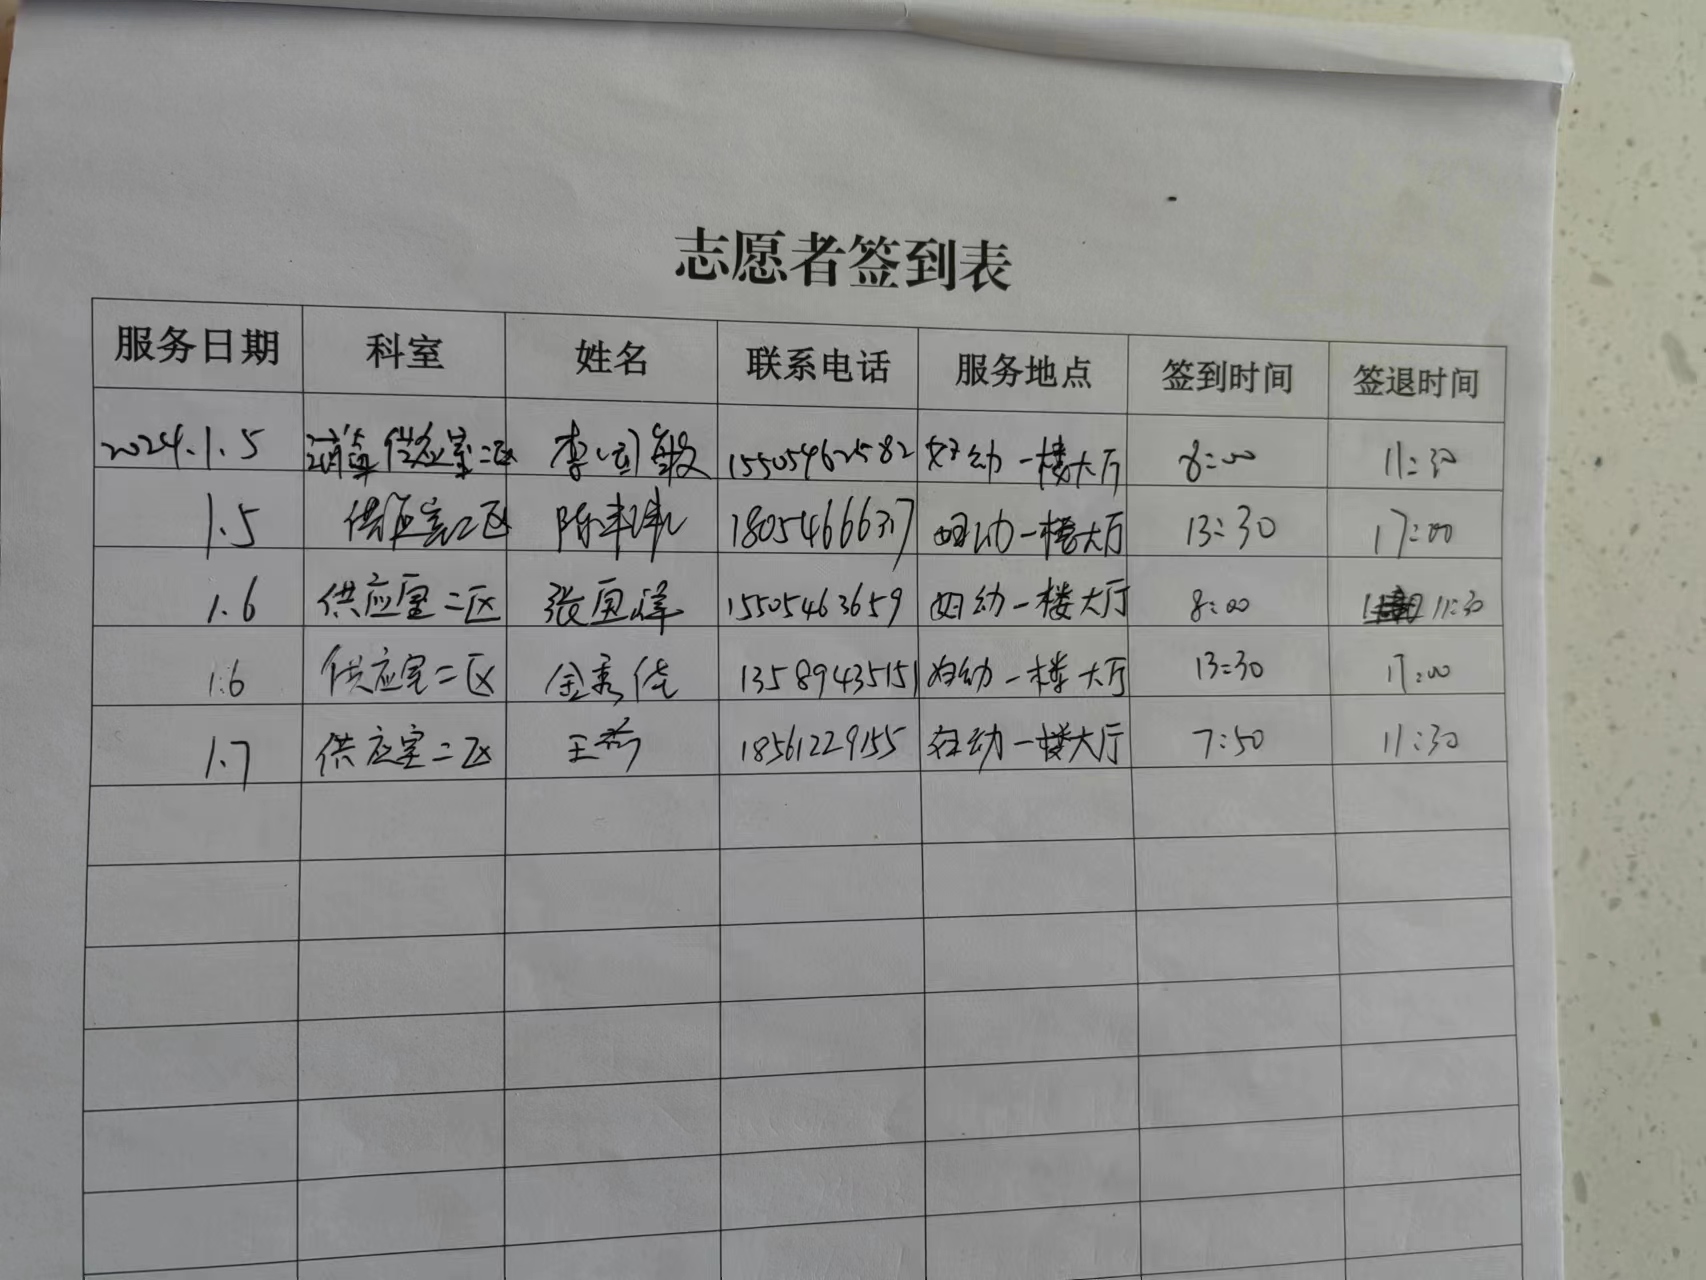 志愿者签到表
服务日期 科室 姓名 联系电话 服务地点 签到时间 签退时间
2024.1.5 供应室二区 李 敏 15505462582 妇幼一楼大厅 8:00 11:30
1.5 供应室二区 陈 18054666317 妇幼一楼大厅 13:30 17:00
1.6 供应室二区 张 峰 15505463659 妇幼一楼大厅 8:00 11:30
1.6 供应室二区 金秀佳 13589435151 妇幼一楼大厅 13:30 17:00
1.7 供应室二区 王 18561229155 妇幼一楼大厅 7:50 11:30